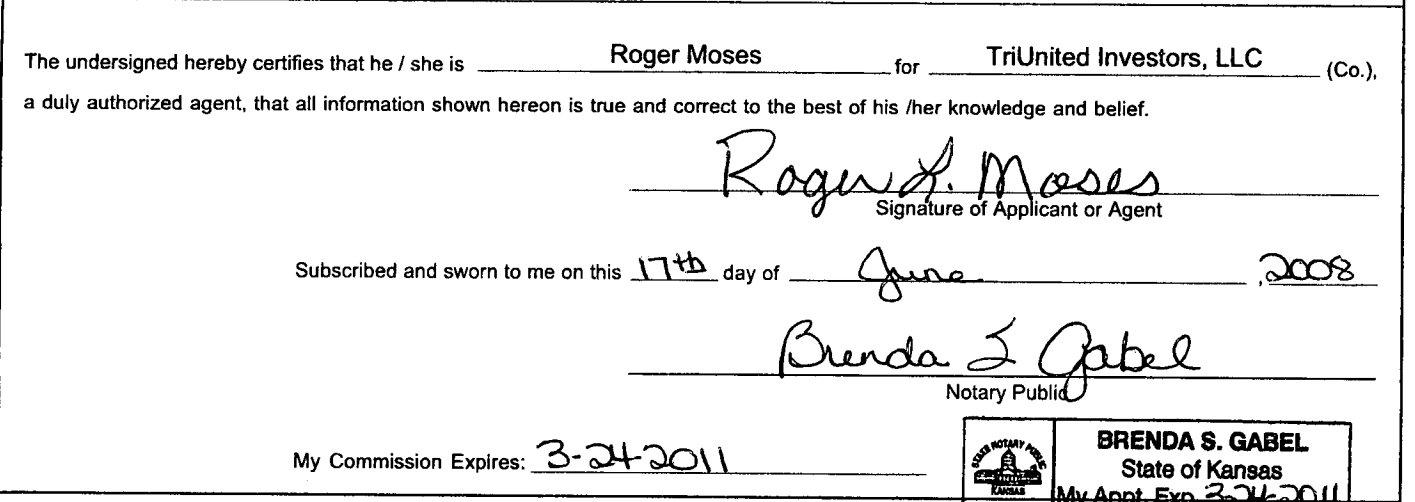 The undersigned hereby certifies that he / she is Roger Moses for TriUnited Investors, LLC (Co.),
a duly authorized agent, that all information shown hereon is true and correct to the best of his /her knowledge and belief.
Roger L. Moses
Signature of Applicant or Agent
Subscribed and sworn to me on this 17th day of June, 2008
Brenda S Gabel
Notary Public
My Commission Expires: 3-24-2011
STATE NOTARY PUBLIC
KANSAS
BRENDA S. GABEL
State of Kansas
My Appt. Exp. 3-24-2011